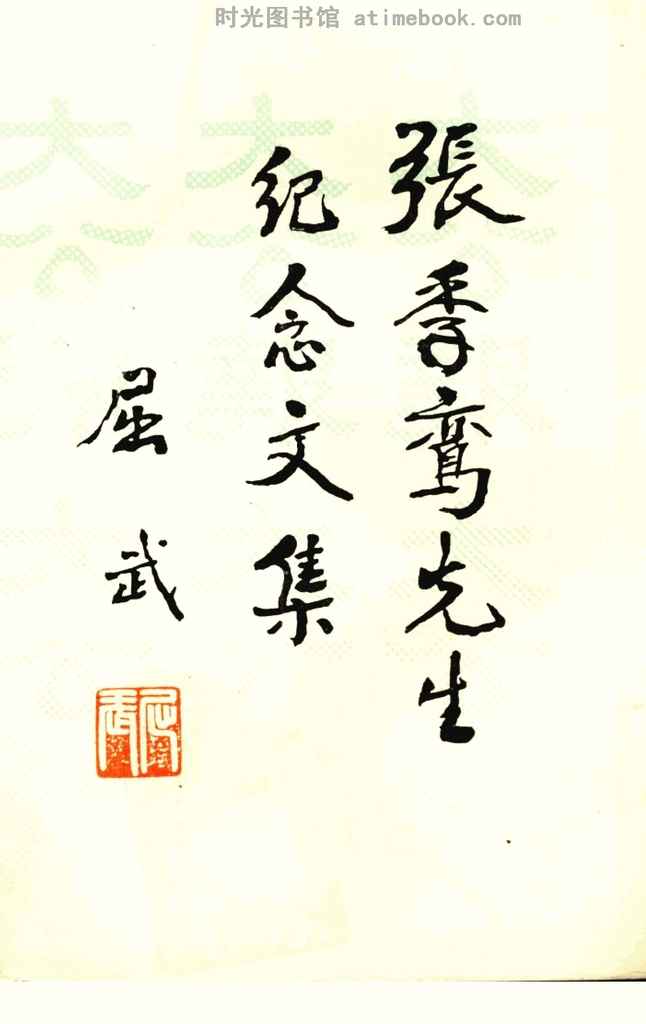 时光图书馆 atimebook.com
張季鸾先生
纪念文集
屈武
屈武